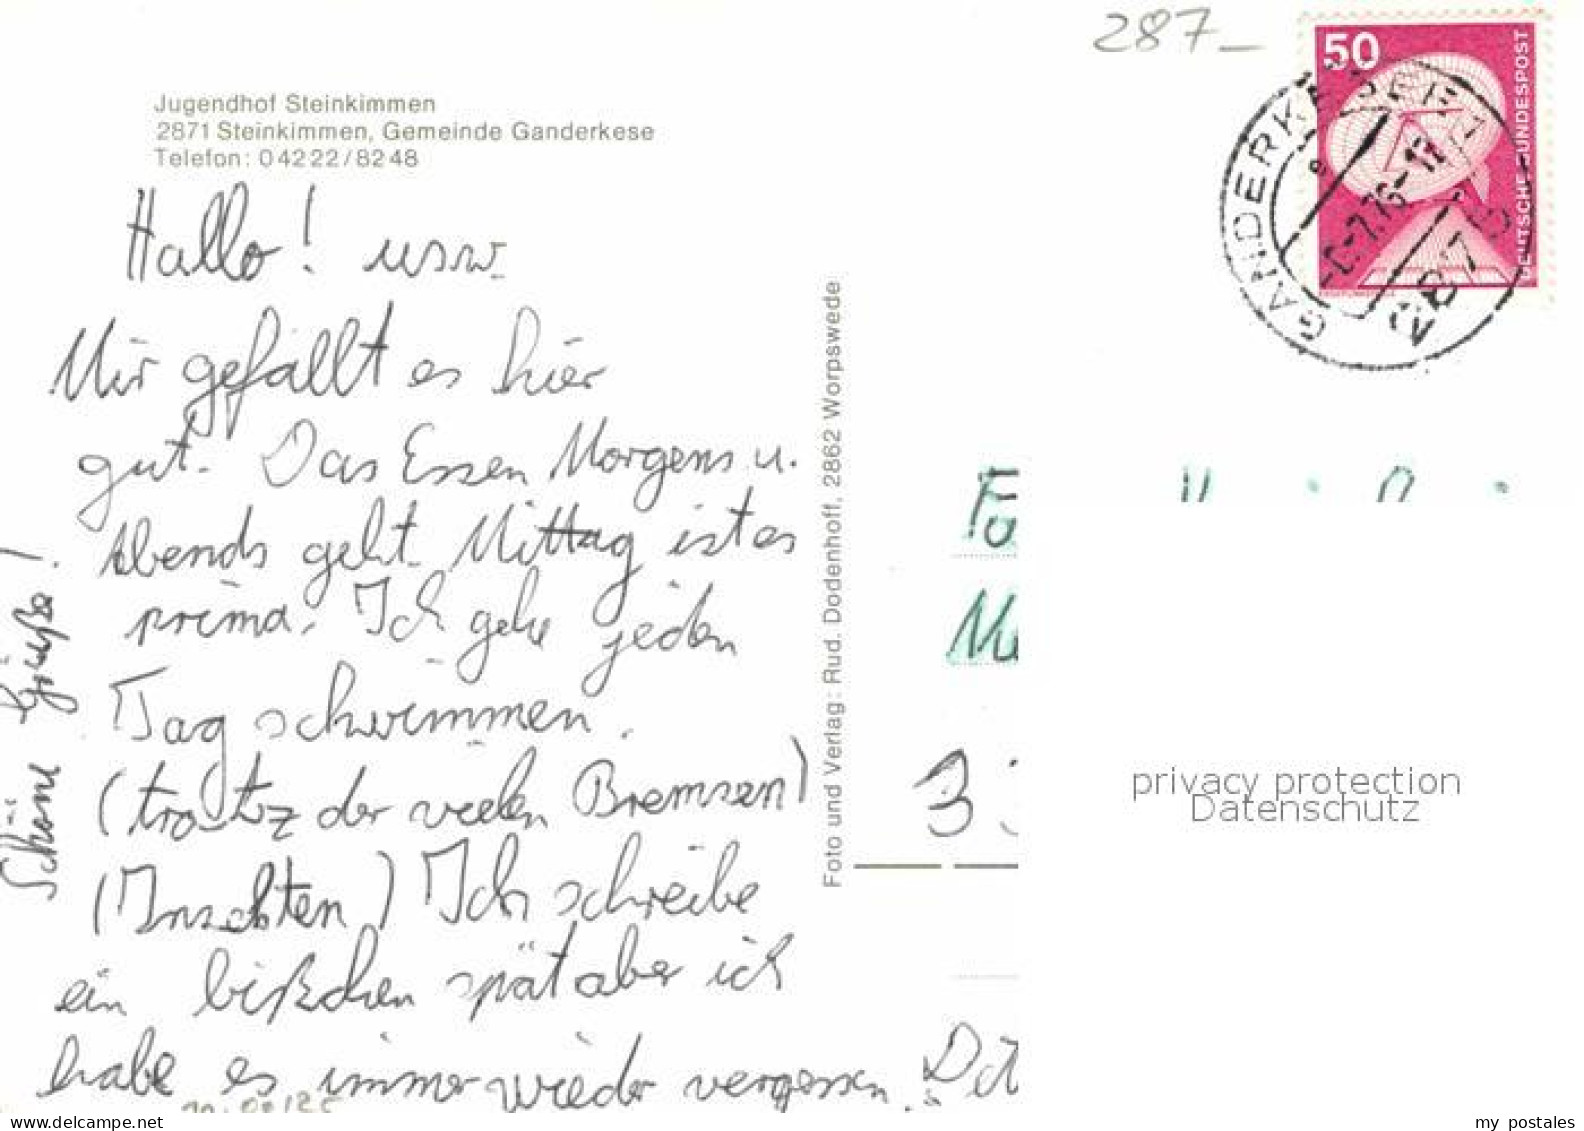 287_
50
DEUTSCHE BUNDESPOST
GANDERKESEE 1
2870
Jugendhof Steinkimmen
2871 Steinkimmen, Gemeinde Ganderkese
Telefon: 04222/8248
Hallo! usw.
Mir gefällt es hier
gut. Das Essen Morgens u.
Abends geht. Mittag ist es
prima. Ich gehe jeden
Tag schwimmen.
(trotz der vielen Bremsen)
(Insekten) Ich schreibe
ein bißchen spät aber ich
habe es immer wieder vergessen.
Schöne Grüße!
Foto und Verlag: Rud. Dodenhoff, 2862 Worpswede
Fa
Mu
3
Det
privacy protection
Datenschutz
www.delcampe.net
my_postales